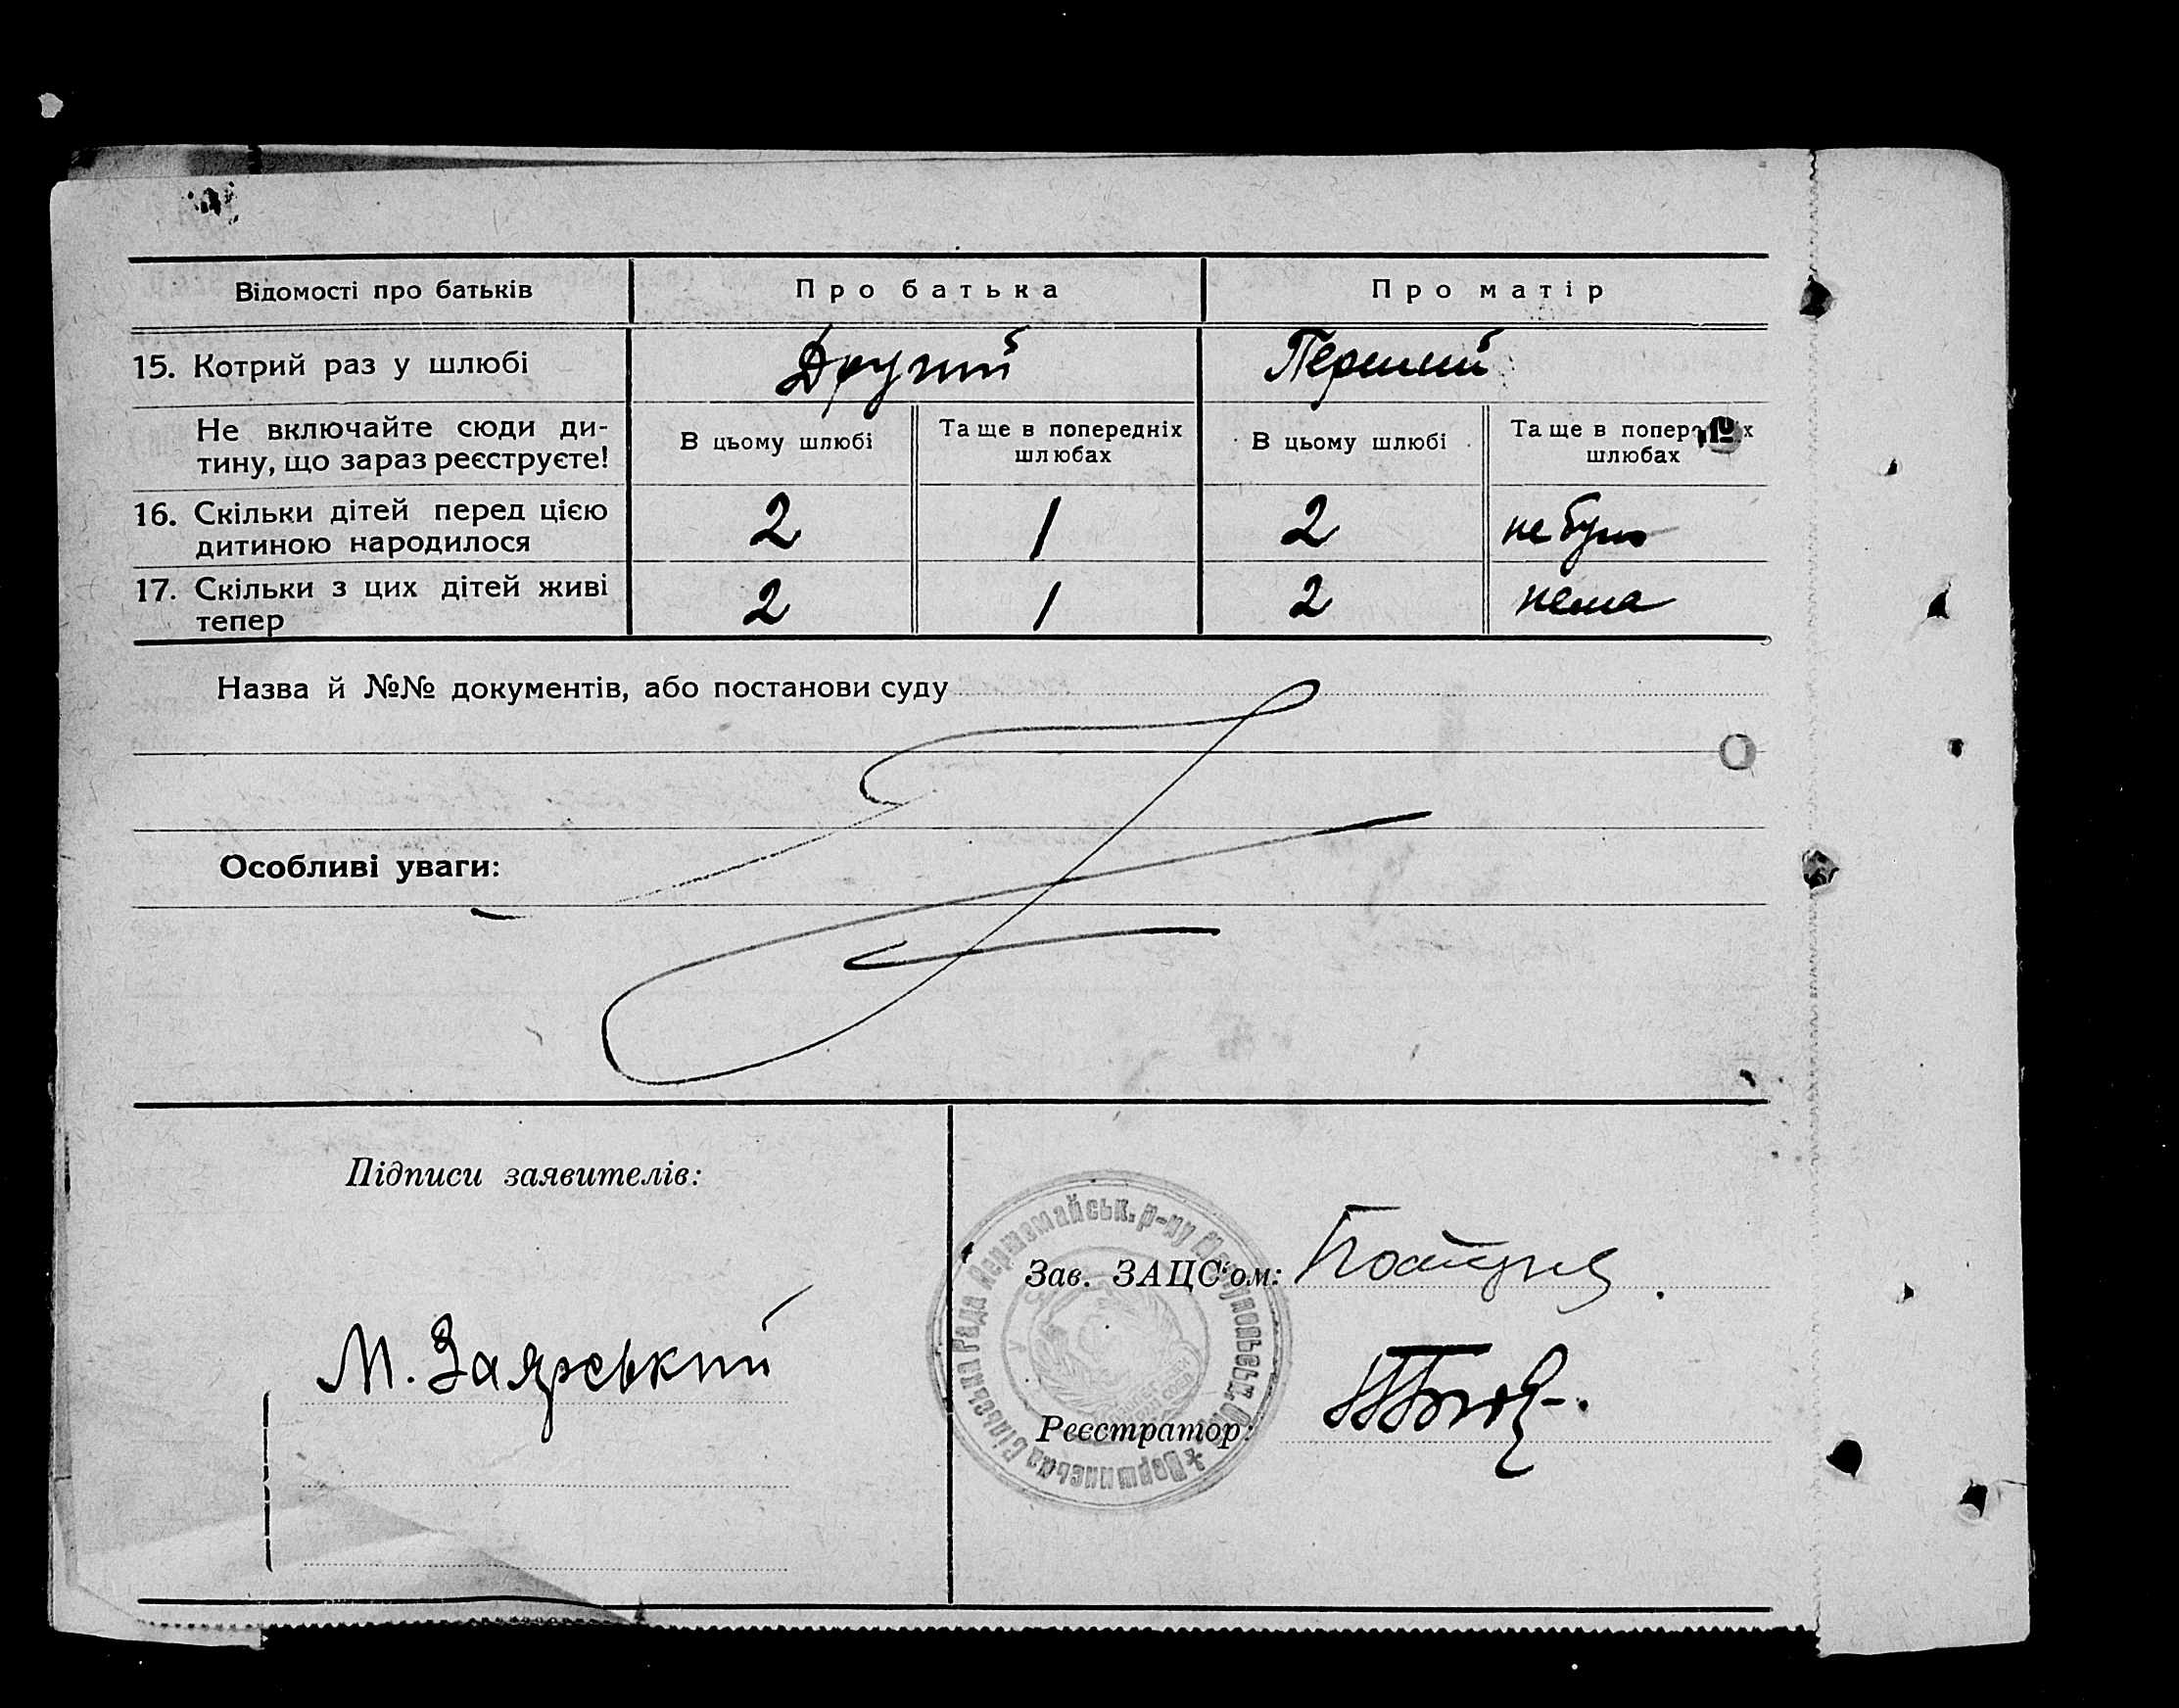 Відомості про батьків
Про батька
Про матір
15. Котрий раз у шлюбі
Другий
Перший
Не включайте сюди ди-
тину, що зараз реєструєте!
В цьому шлюбі
Та ще в попередніх
шлюбах
В цьому шлюбі
Та ще в
шлюбах
16. Скільки дітей перед цією
дитиною народилося
2
1
2
не було
17. Скільки з цих дітей живі
тепер
2
1
2
нема
Назва й №№ документів, або постанови суду
Особливі уваги:
Підписи заявителів:
М. Заярський
Зав. ЗАЦС'ом:
Реєстратор:
Сільська Рада Первомайськ. р-ну